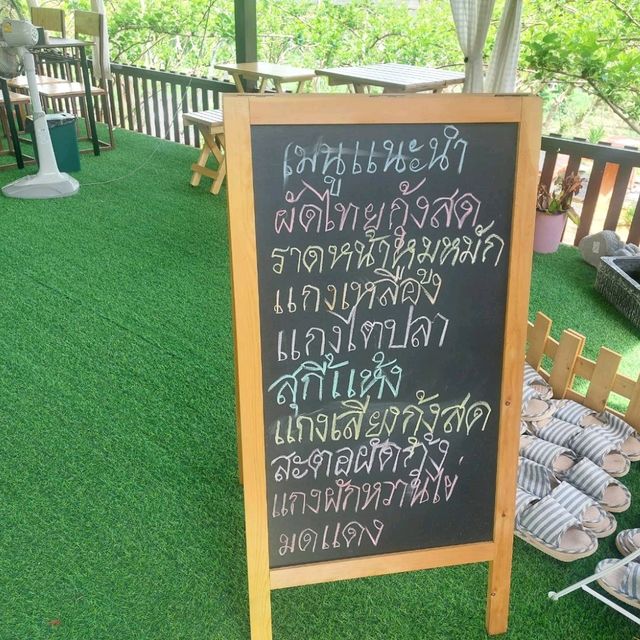 เมนูแนะนำ
ผัดไทยกุ้งสด
ราดหน้าหมูหมัก
แกงเหลือง
แกงไตปลา
สุกี้แห้ง
แกงเลียงกุ้งสด
สะตอผัดกุ้ง
แกงผักหวานไข่
มดแดง